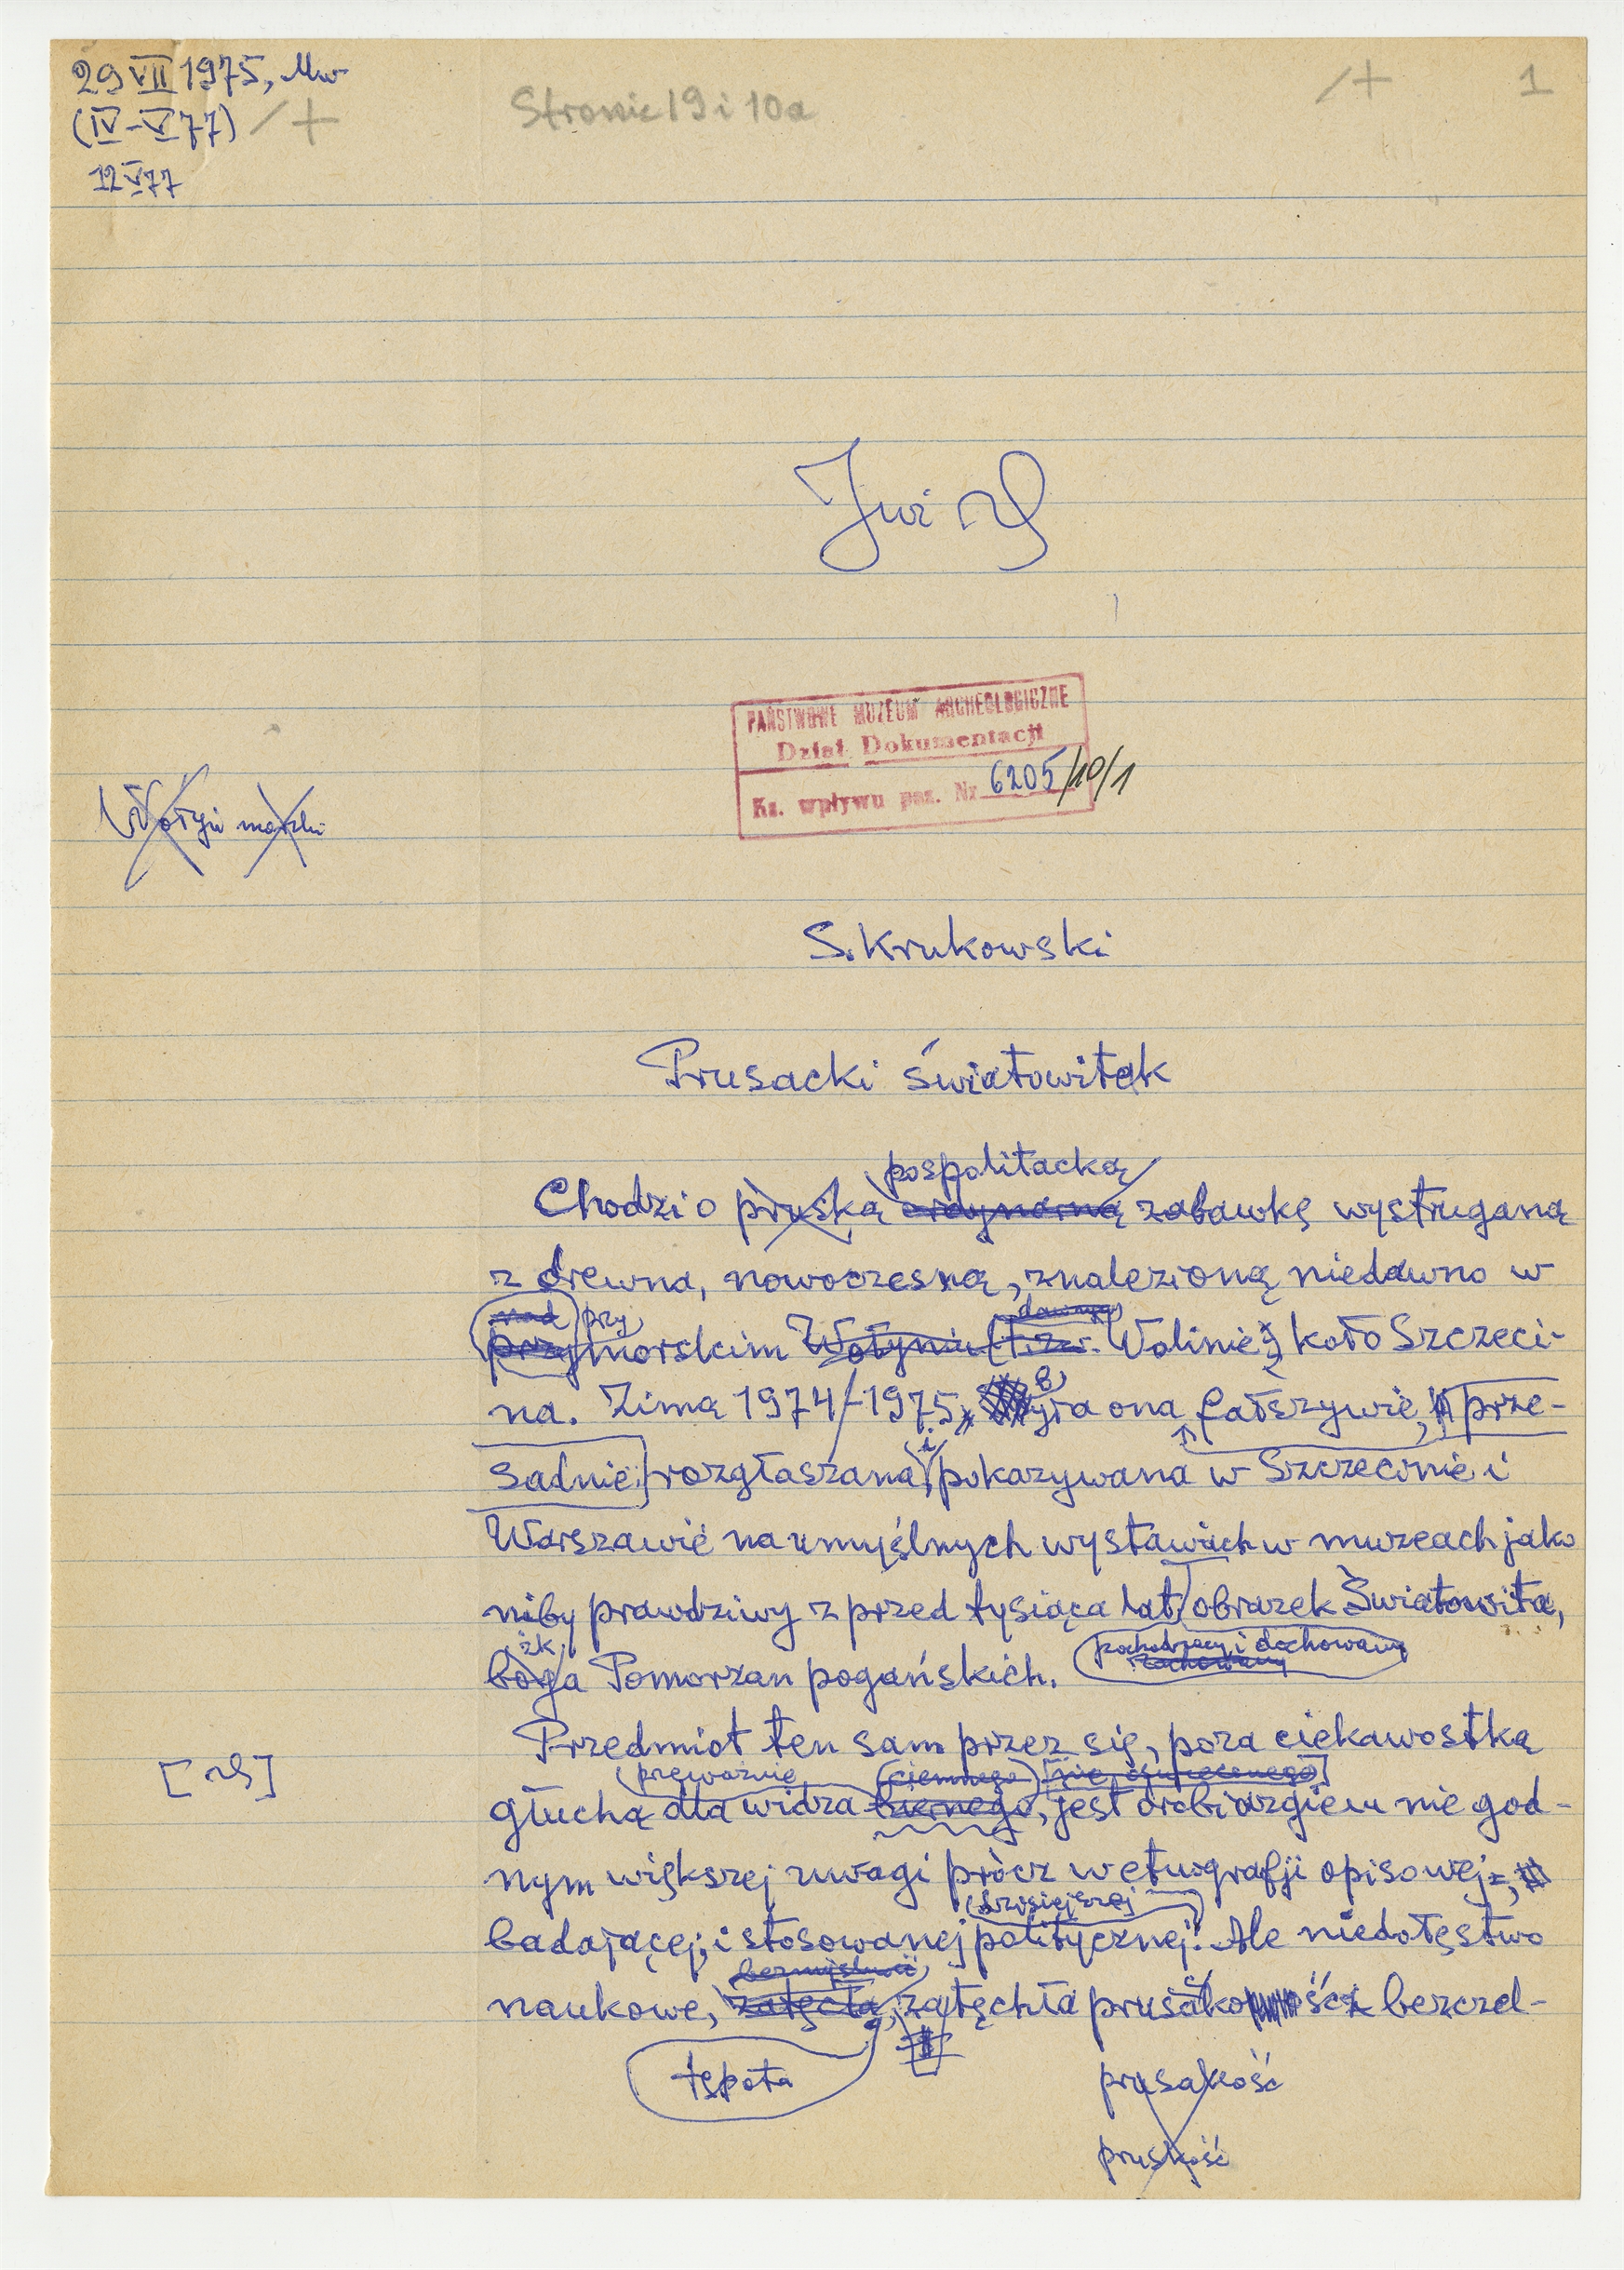 29 VII 1975, Mw
(IV-V 77) /+
12 V 77
Stronic 19 i 10a
/+
1
PAŃSTWOWE MUZEUM ARCHEOLOGICZNE
Dział Dokumentacji
Ks. wpływu poz. Nr 6205/10/1
S. Krukowski
Prusacki światowitek
pospolitacką
Chodzi o pruską ordynarną zabawkę wystruganą
z drewna, nowoczesną, znalezioną niedawno w
nad przy
dawną
przymorskim Wołyniu (tzw. Wolinie) koło Szczeci-
na. Zimą 1974/-1975, była ona fałszywie, prze-
sadnie, rozgłaszana i pokazywana w Szczecinie i
Warszawie na umyślnych wystawach w muzeach jako
niby prawdziwy z przed tysiąca lat obrazek Światowita,
pochodzący i dochowany
zachowany
żk
boga Pomorzan pogańskich.
Przedmiot ten sam przez się, poza ciekawostką
przeważnie (ciemnego)
głuchą dla widza biernego, jest drobiazgiem nie god-
nym większej uwagi prócz w etnografji opisowej,
dzisiejszej
badającej, i stosowanej politycznej. Ale niedołęstwo
bezmyślność
naukowe, zatęchła, zatęchła prusakowość z bezczel-
tępota
prusakość
pruskość